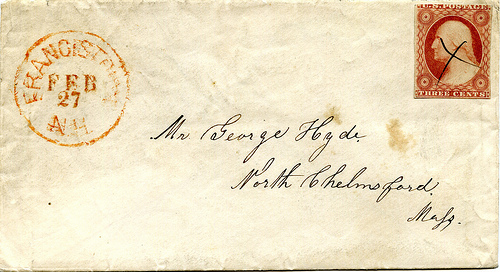 U.S. POSTAGE
THREE CENTS
FRANCISTOWN
FEB
27
N.H.
Mr George Hyde.
North Chelmsford.
Mass.